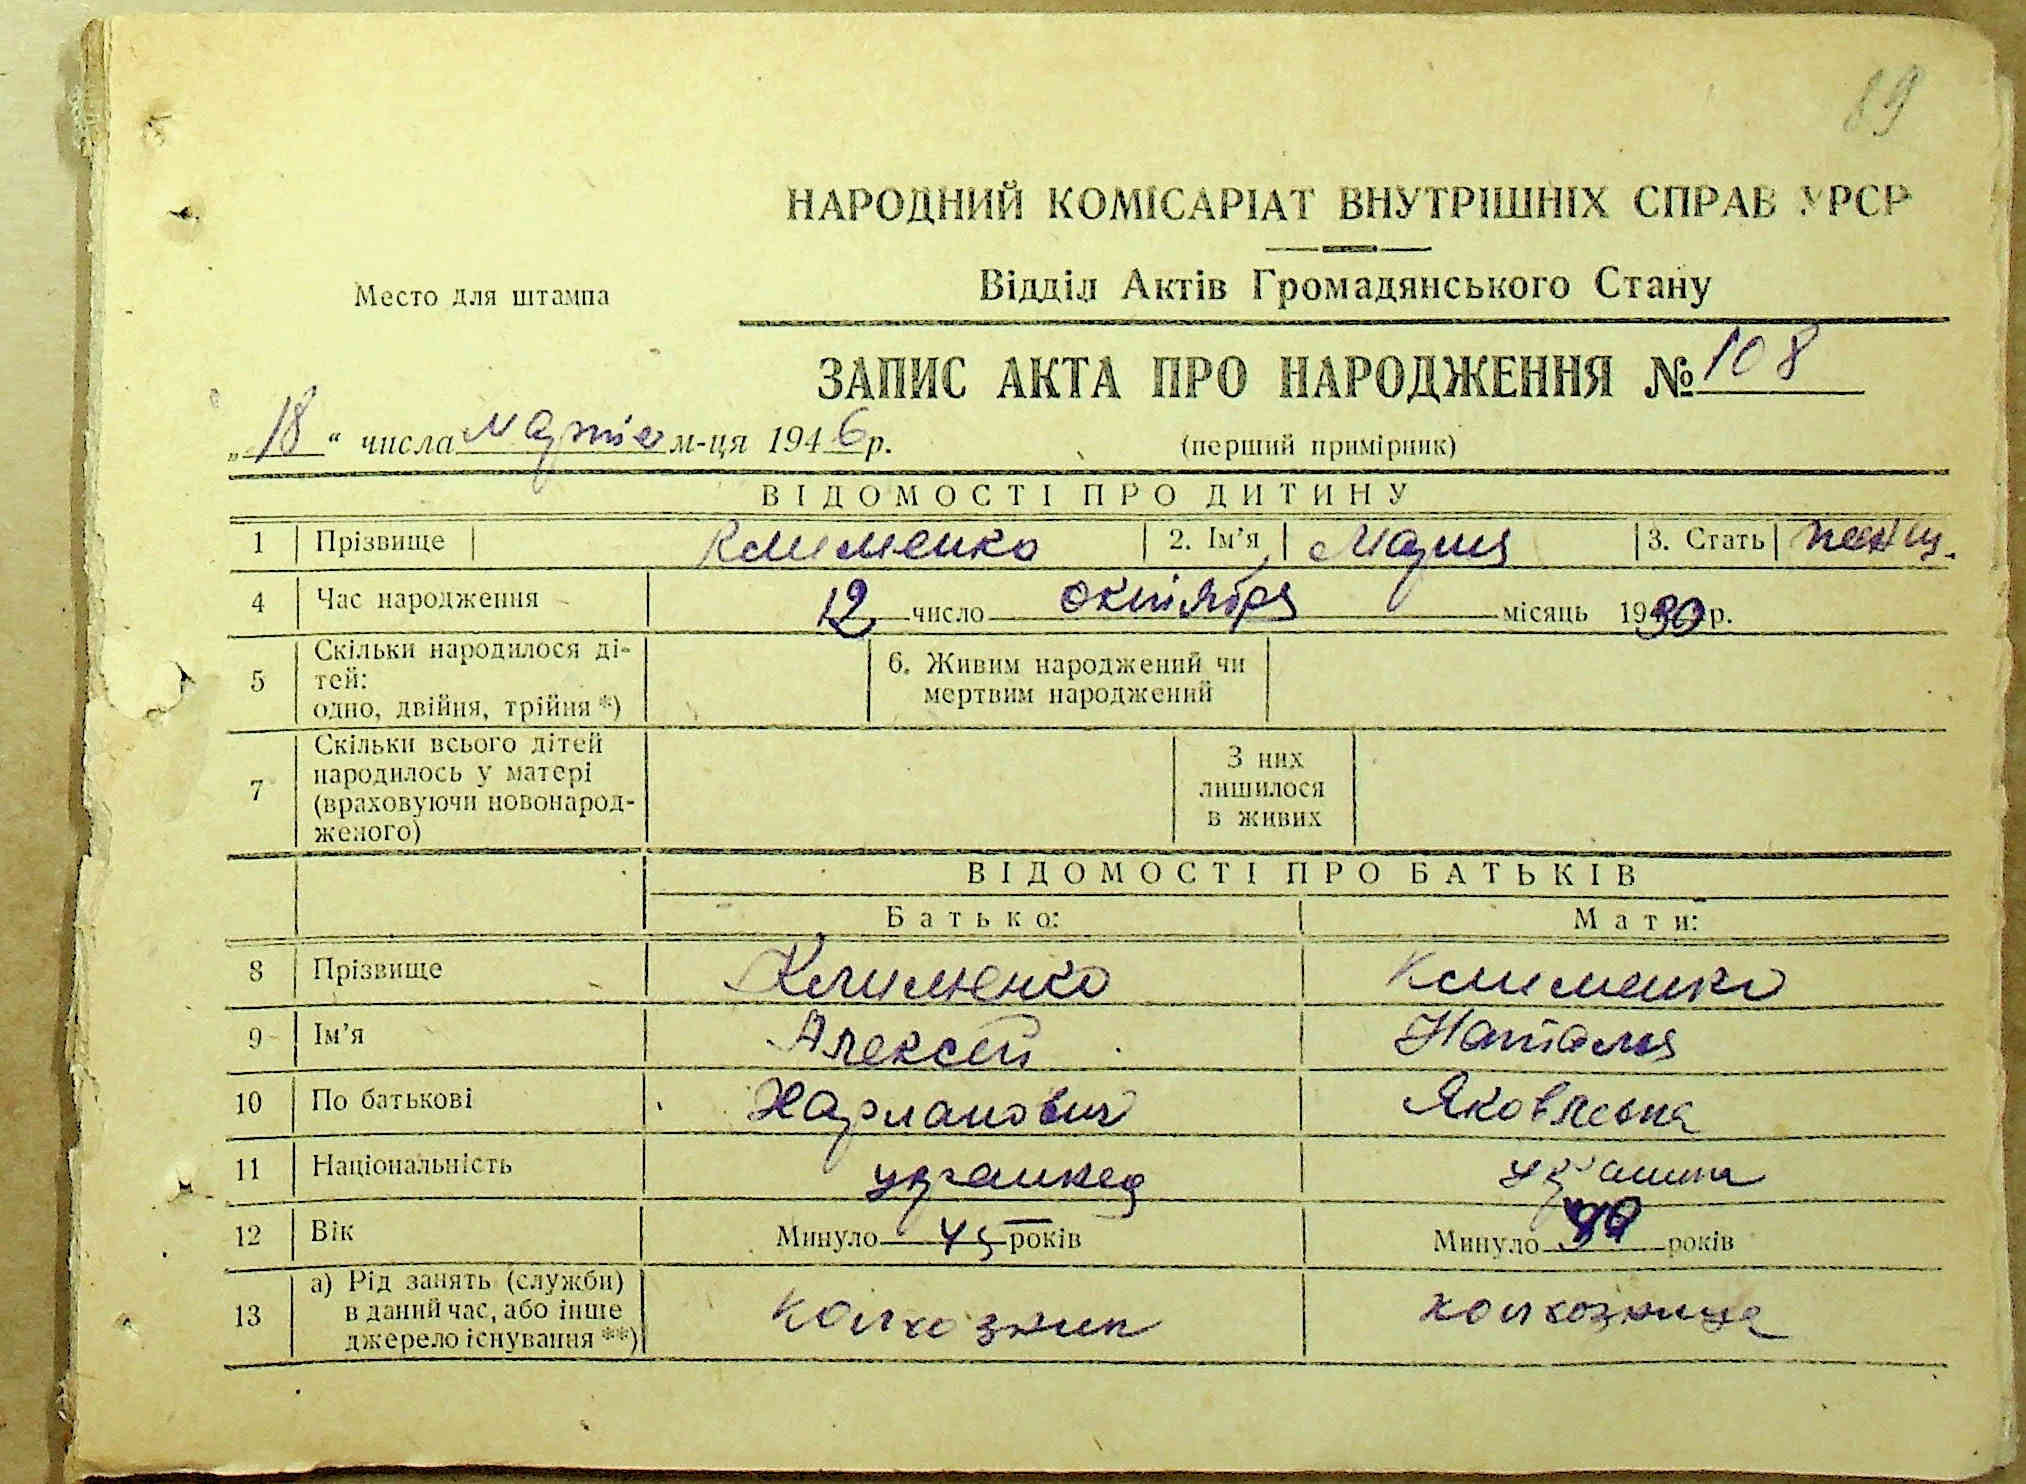 89
НАРОДНИЙ КОМІСАРІАТ ВНУТРІШНІХ СПРАВ УРСР
Место для штампа
Відділ Актів Громадянського Стану
ЗАПИС АКТА ПРО НАРОДЖЕННЯ № 108
„18“ числа марта м-ця 1946 р.
(перший примірник)
ВІДОМОСТІ ПРО ДИТИНУ
1 Прізвище Клименко 2. Ім’я Мария 3. Стать женщ.
4 Час народження 12 число октября місяць 1930 р.
5 Скільки народилося ді-
тей:
одно, двійня, трійня *)
6. Живим народжений чи
мертвим народжений
7 Скільки всього дітей
народилось у матері
(враховуючи новонарод-
женого)
З них
лишилося
в живих
ВІДОМОСТІ ПРО БАТЬКІВ
Батько: Мати:
8 Прізвище Клименко Клименко
9 Ім’я Алексей Наталья
10 По батькові Яковлевна
11 Національність
12 Вік Минуло 45 років Минуло років
13 а) Рід занять (служби)
в даний час, або інше
джерело існування **)
колхозник колхозница